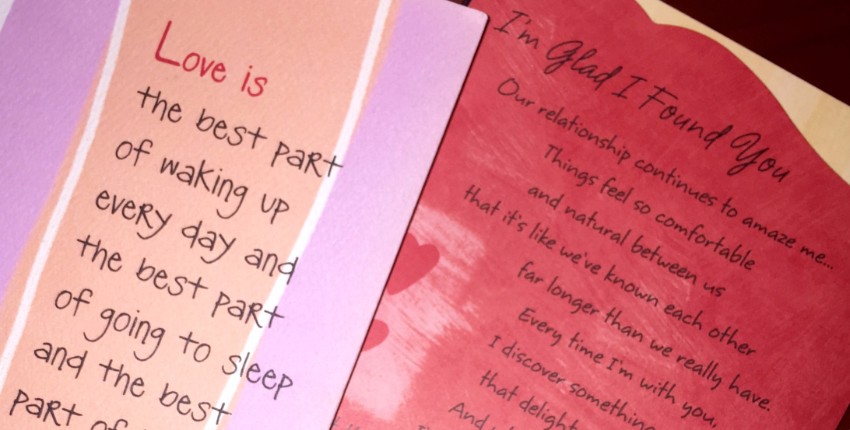 Love is
the best part
of waking up
every day and
the best part
of going to sleep
and the best
part of
I'm Glad I Found You
Our relationship continues to amaze me...
Things feel so comfortable
and natural between us
that it's like we've known each other
far longer than we really have.
Every time I'm with you,
I discover something
that
And